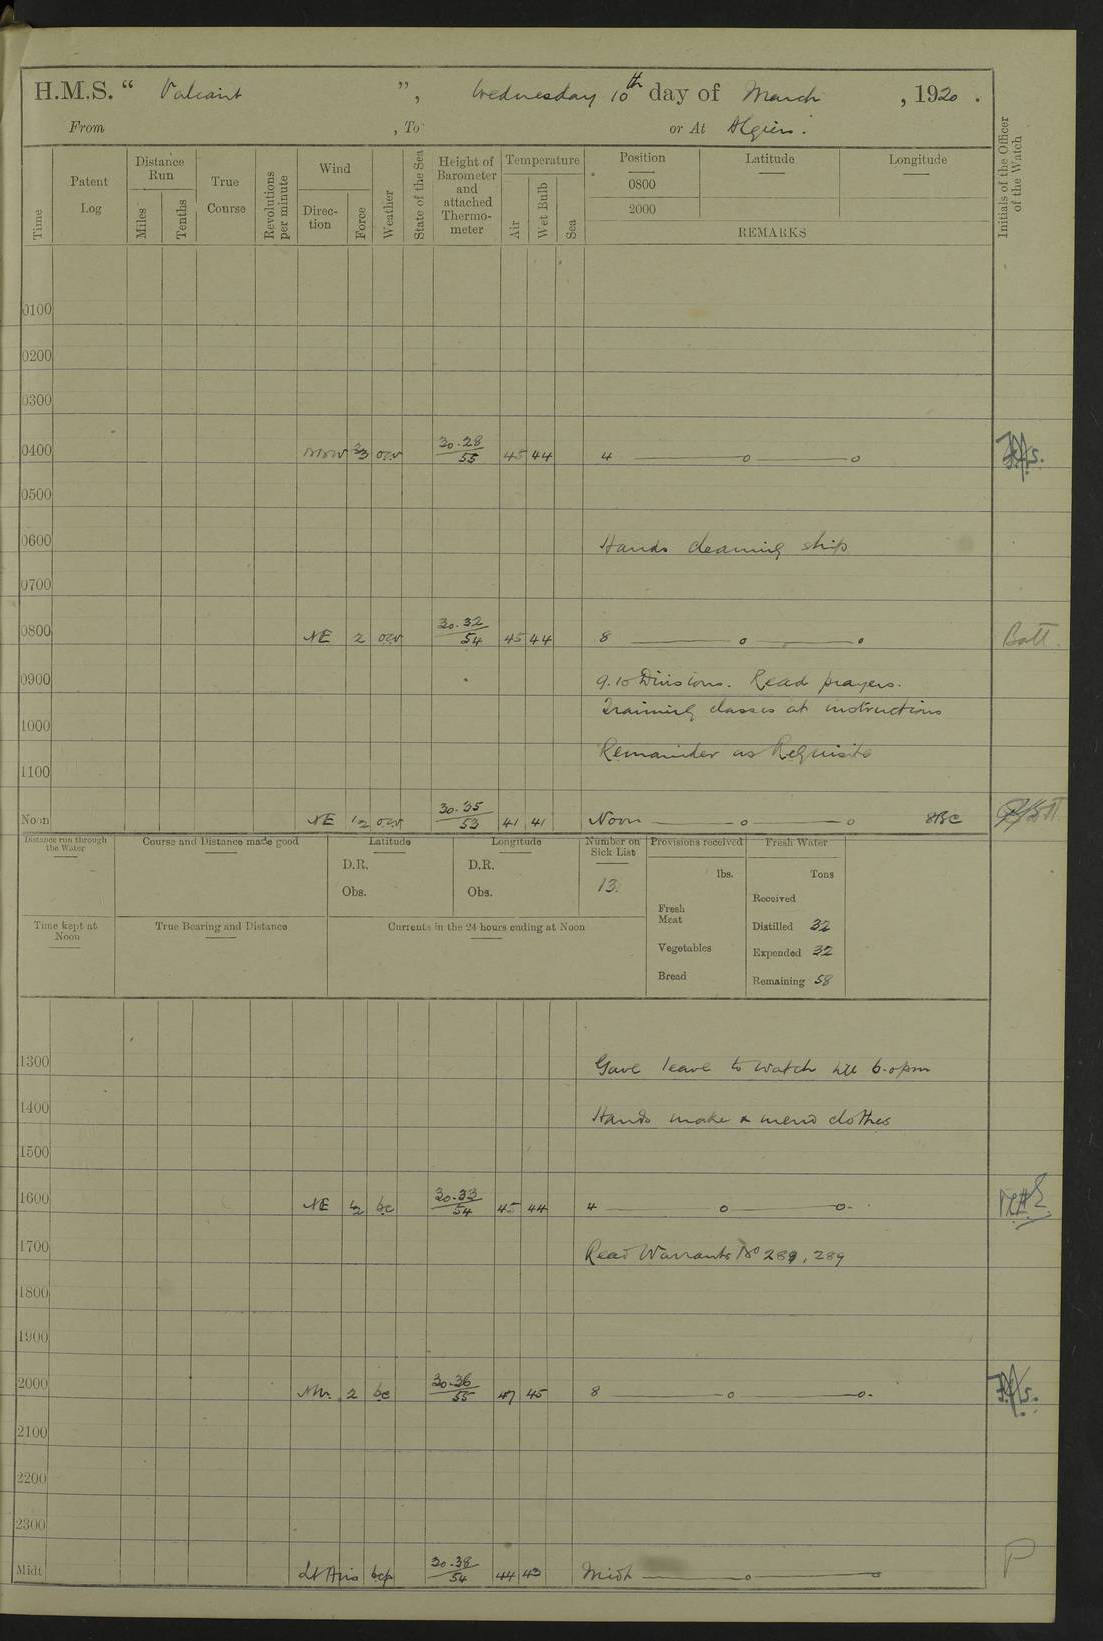 H.M.S. " Valiant ", Wednesday 10th day of March, 1920.
From , To or At Algiers.
Time
Patent Log
Distance Run
Miles
Tenths
True Course
Revolutions per minute
Wind
Direction
Force
Weather
State of the Sea
Height of Barometer and attached Thermometer
Temperature
Air
Wet Bulb
Sea
Position
0800
2000
Latitude
Longitude
REMARKS
Initials of the Officer of the Watch
0100
0200
0300
0400 NNW 2/3 30.28/55 45 44 4
0500
0600 Hands cleaning ship
0700
0800 NE 2 30.32/54 45 44 8
0900 9.10 Divisions. Read prayers.
Training classes at instructions
1000
Remainder as Requisite
1100
Noon NE 1/2 30.35/53 41 41 Noon
Distance run through the Water
Course and Distance made good
Latitude
D.R.
Obs.
Longitude
D.R.
Obs.
Number on Sick List
13
Provisions received
lbs.
Fresh Meat
Vegetables
Bread
Fresh Water
Tons
Received
Distilled 32
Expended 32
Remaining 58
Time kept at Noon
True Bearing and Distance
Currents in the 24 hours ending at Noon
1300 Gave leave to watch till 6.0pm
1400 Hands make & mend clothes
1500
1600 NE bc 30.33/54 45 44 4
1700 Read Warrants No 289, 289
1800
1900
2000 NW. 2 bc 30.36/55 47 45 8
2100
2200
2300
Midt Lt Airs bcp 30.38/54 44 43 Midt
P